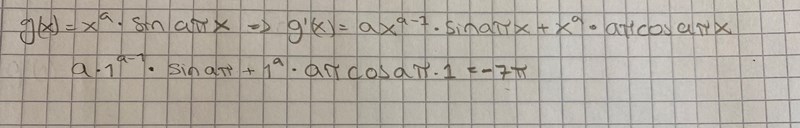 g(x) = x^a · sin aπx => g'(x) = ax^{a-1} · sin aπx + x^a · aπ cos aπx
a · 1^{a-1} · sin aπ + 1^a · aπ cos aπ · 1 = -7π